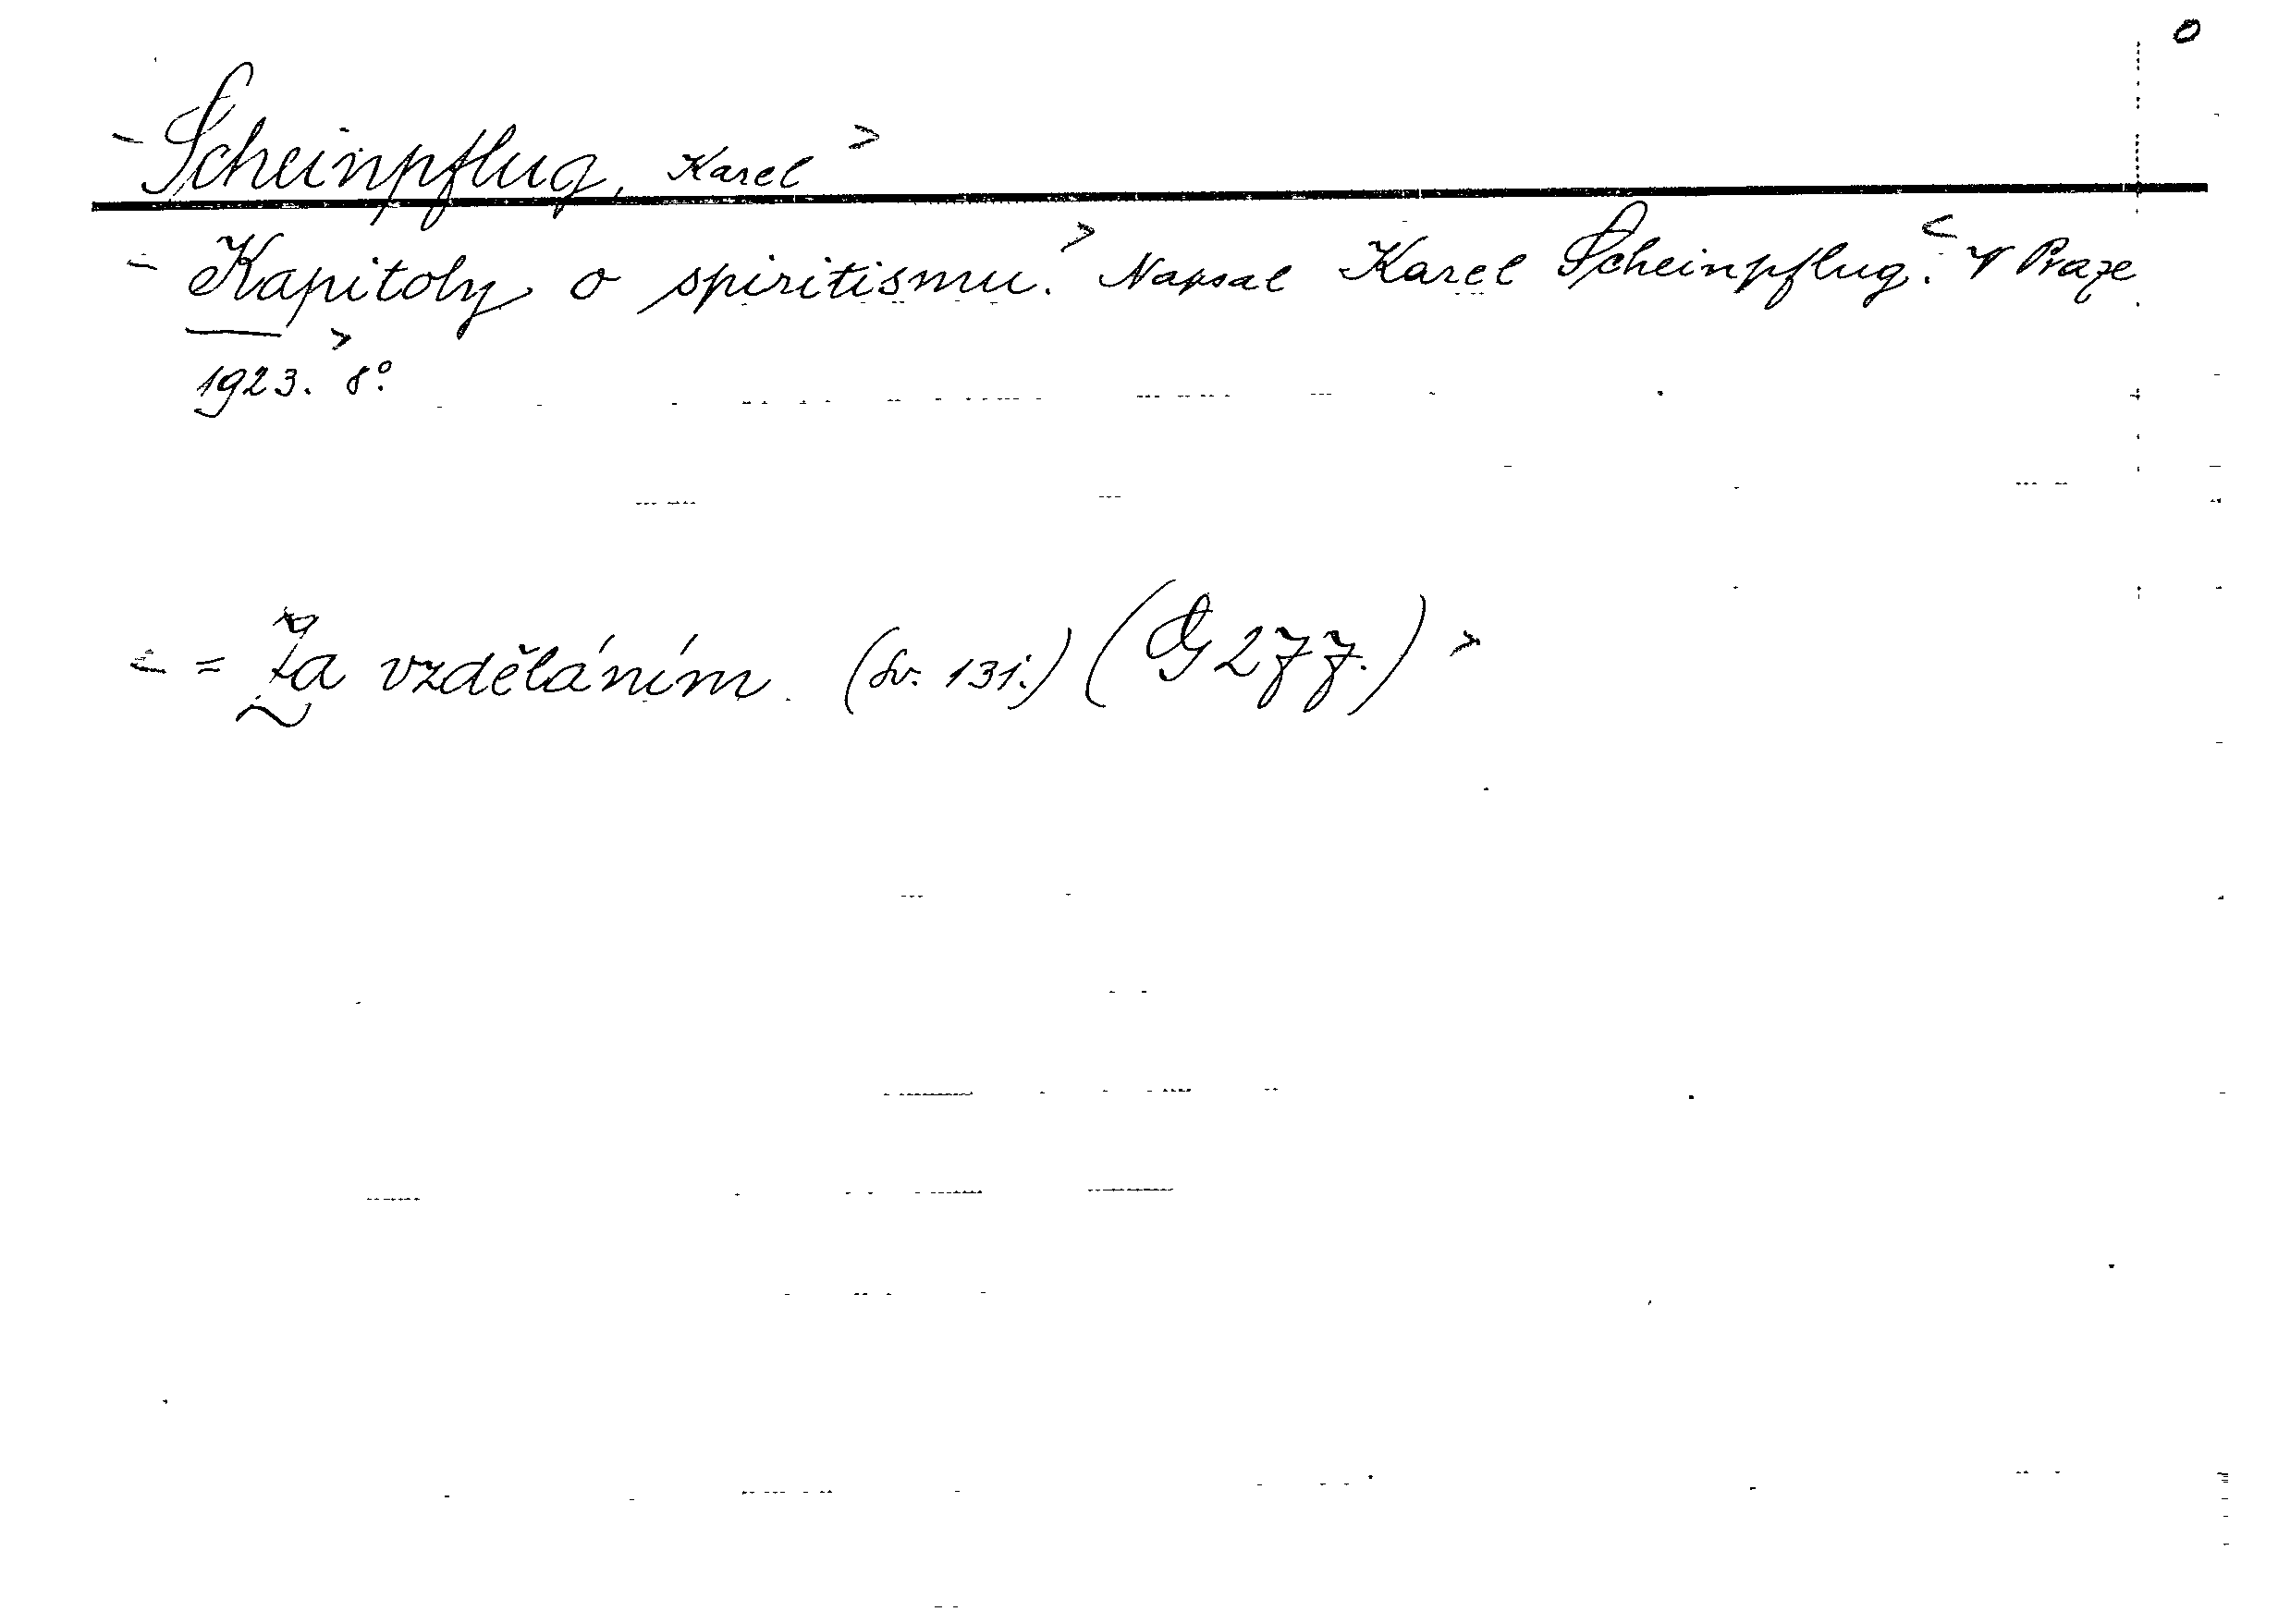 0
Scheinpflug, Karel >
- Kapitoly o spiritismu. > Napsal Karel Scheinpflug. < V Praze
1923. > 8°.
< = Za vzděláním. (Sv. 131.) (G 277.) >